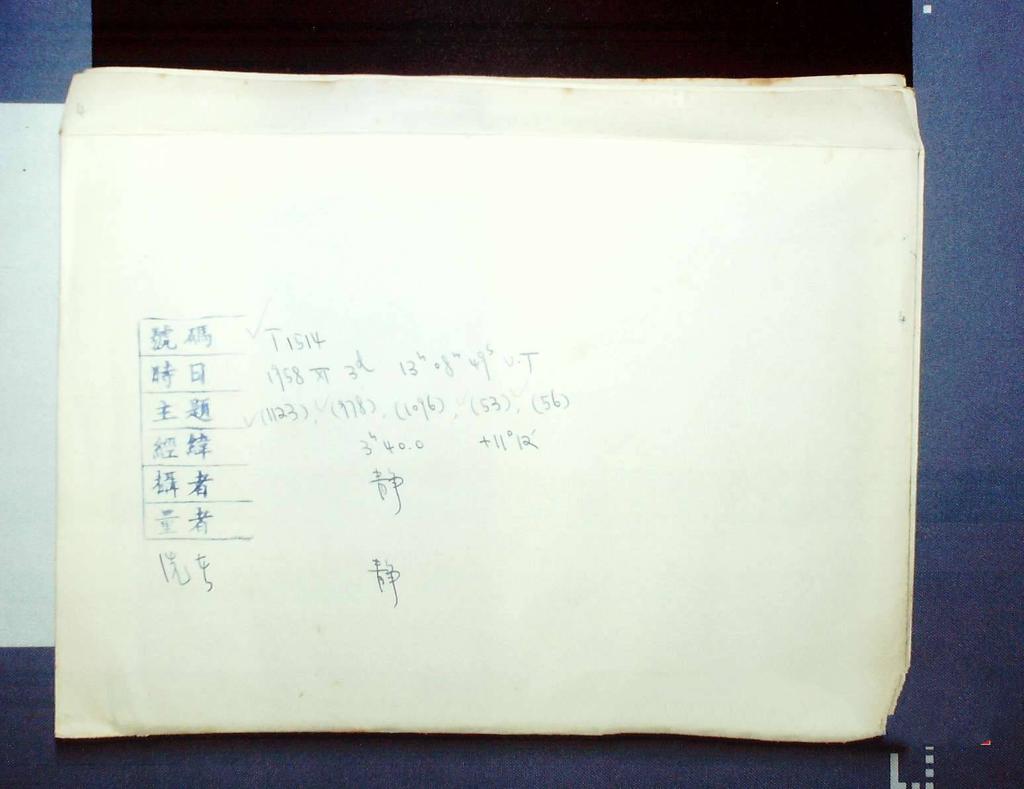 號碼 T1514
時日 1958 XI 3d 13h 08m 49s U.T
主題 (1123), (978), (1096), (53), (56)
經緯 3h 40.0 +11°12′
攝者 靜
量者
洗者 靜